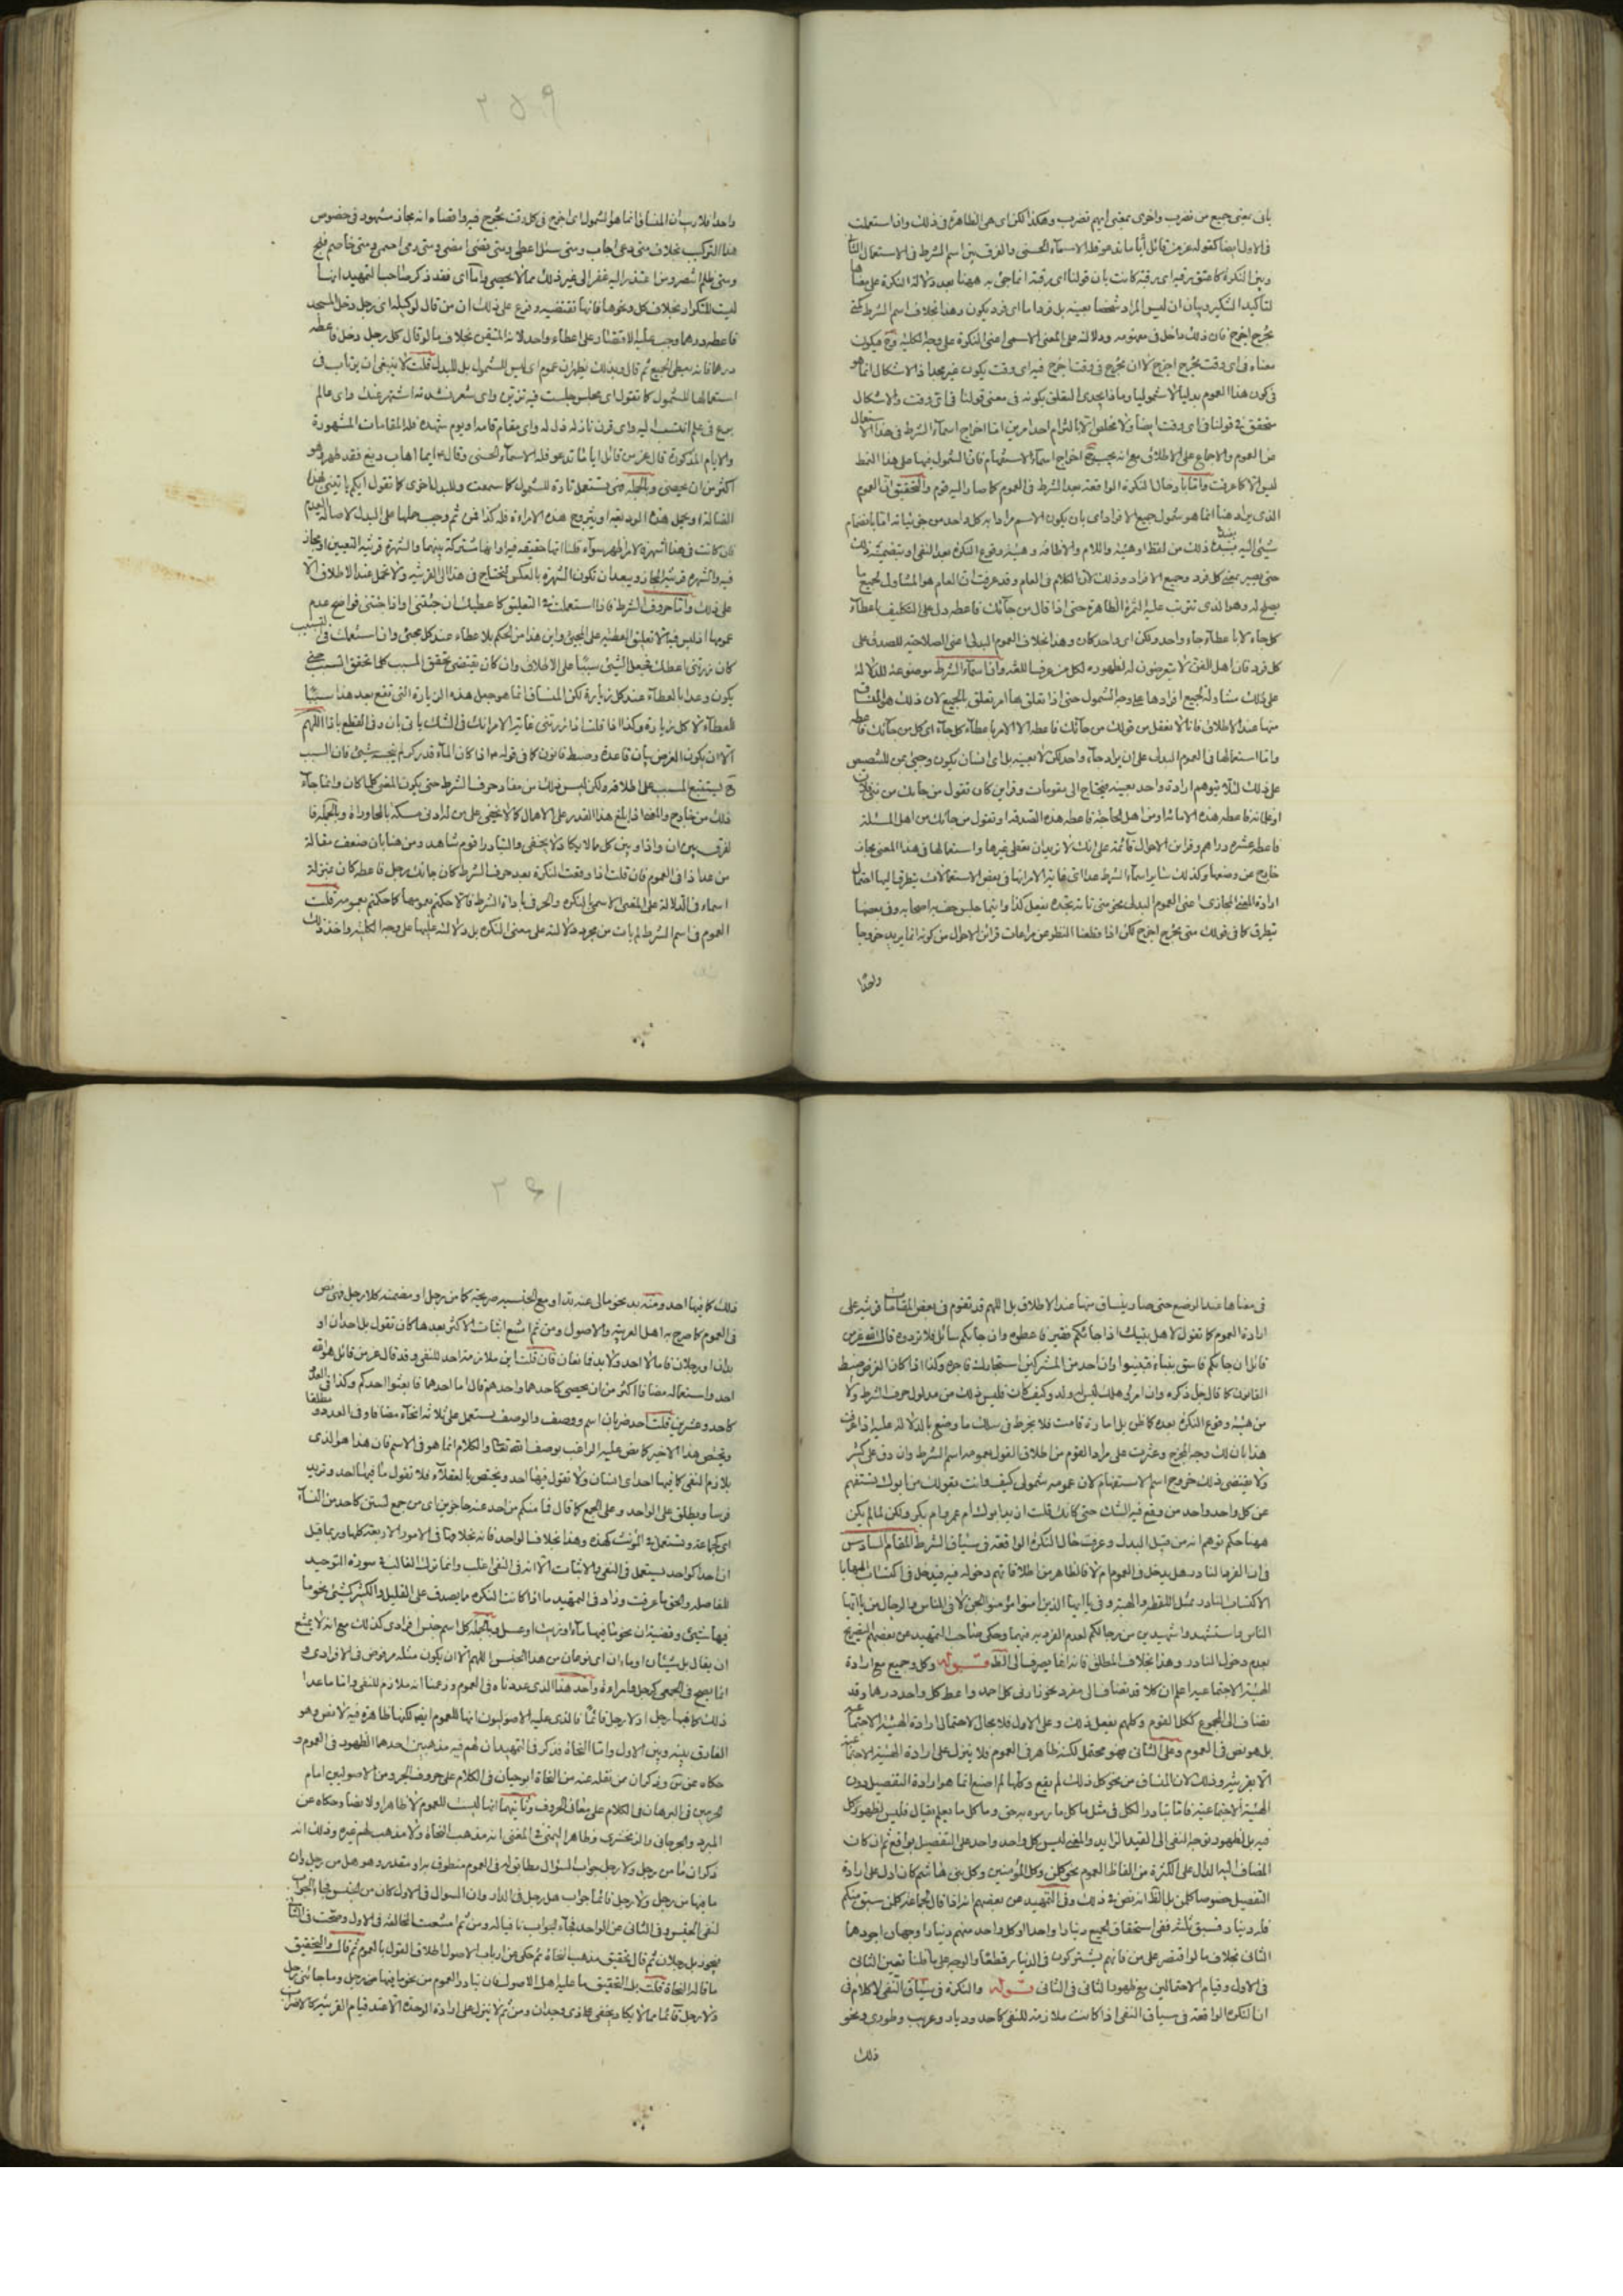 باى بمعنى جميع من نضرب واخرى بمعنى ايهم نضرب وهكذا لكن اى هى الظاهرة فى ذلك واذا استعملت
فى الاول ايضا كقوله عز من قائل أيا ما تدعوا فله الاسمآء الحسنى والفرق بين اسم الشرط فى الاستعمال الثانى
وبين النكرة كاعتق رقبة اى رقبة كانت بان قولنا اى رقبة انما جئ به ههنا بعد دلالة النكرة على معناها
لتأكيد التنكير وبيان ان ليس المراد شخصا بعينه بل فردا ما اى فرد يكون وهذا بخلاف اسم الشرط كمتى
تخرج اخرج فان ذلك داخل فى مفهومه ودلالته على المعنى الاسمى اعنى النكرة على وجه الكلية وح فيكون
معناه فى اى وقت تخرج اخرج لا ان تخرج فى وقت اخرج فيه اى وقت يكون غير مجد اذ الاشكال انما هو
فى كون هذا العموم بدليا لا شموليا وماذا يجدى التعلق بكونه فى معنى قولنا فى اى وقت والاشكال
متحقق فى قولنا فى اى وقت ايضا ولا مخلص الا بالتزام احد امرين اما اخراج اسمآء الشرط فى هذا الاستعمال
عن العموم والاجماع على الاطلاق مع انه يجب ح اخراج اسمآء الاستفهام فان الشمول فيها على هذا النمط
ليس الا كما عرفت واما بارحال النكرة الواقعة بعد الشرط فى العموم كما صار اليه قوم والتحقيق ان العموم
الذى يراد هنا انما هو شمول جميع الافراد اى بان يكون الاسم مرادا به كل واحد من جزئياته اما بانضمام
شئ اليه يفيد ذلك من لفظ او هيئة واللام والاضافة وهيئة وقوع النكرة بعد النفى او بتضمنه ذلك
حتى يصير بمعنى كل فرد وجميع الافراد وذلك لان الكلام فى العام وقد عرفت ان العام هو المتناول لجميع ما
يصلح له وهو الذى تترتب عليه الثمرة الظاهرة حتى اذا قال من جآئك فاعطه دل على التكليف باعطآء
كل جاء لا باعطآء جاء واحد وتكن اى واحد كان وهذا بخلاف العموم البدلى اعنى الصلاحية للصدق على
كل فرد فان اهل الفن لا يتعرضون له لظهوره لكل من عرف اللغة واذا اسمآء الشرط موضوعة للدلالة
على ذلك متناولة لجميع افرادها على وجه الشمول حتى اذا تعلق بها امر تعلق بالجميع لان ذلك هو المنساق
منها عند الاطلاق فانا لا نعقل من قولك من جآئك فاعطه الا الامر باعطآء كل جآء اى كل من جآئك فاعطه
واما استعمالها فى العموم البدلى على ان يراد جاء واحد لكن لا بعينه بل اى انسان يكون وحتى من للتنصيص
على ذلك لئلا يتوهم ارادة واحد بعينه فيحتاج الى مقومات وقراين كان تقول من جاءك من بنى فلان
او غلمانه فاعطه هذه الامانة او من اهل الحاجة فاعطه هذه الصدقة او تقول من جائك من اهل المسئلة
فاعطه عشرة دراهم وقراين الاحوال قآئمة على انك لا تريد ان تعطى غيرها واستعمالها فى هذا المعنى مجاز
خارج عن وضعها وكذلك ساير اسمآء الشرط عدا اى غاية الامر انها فى بعض الاستعمالات يتطرق اليها احتمال
ارادة المعنى المجازى اعنى العموم البدلى نحو متى تاته تجده يفعل كذا واينما جلس حف به اصحابه وفى بعضها
يتطرق كما فى قولك متى تخرج اخرج لكن اذا قطعنا النظر عن مراعات قرائن الاحوال من كونه انما يريد خروجا
واحدا
٢٥٩
واحدا فلا ريب ان المنساق انما هو الشمول اى اخرج فى كل وقت تخرج فيه واقصاه انه مجاز مشهود فى خصوص
هذا التركيب بخلاف متى دعى اجاب ومتى سئل اعطى ومتى قضى امضى ومتى رمى اصمى ومتى خاصم فلج
ومتى ظلم انتصر ومن اعتذر اليه غفر الى غير ذلك مما لا يحصى واما اى فقد ذكر صاحب التمهيد انها
ليست للتكرار بخلاف كل ونحوها فانها تقتضيه وفرع على ذلك ان من قال لوكيله اى رجل دخل المسجد
فاعطه درهما وجب عليه الاقتصار على اعطاء واحد لانه المتيقن بخلاف ما لو قال كل رجل دخل فاعطه
درهما فانه يعطى الجميع ثم قال وبذلك يظهر ان عموم اى ليس للشمول بل للبدل قلت لا ينبغى ان يرتاب فى
استعمالها للشمول كما تقول اى مجلس جلست فيه تزين واى شعر نشدته اشتهر عنك واى عالم
برع فى علم انتسب اليه واى قرن نازله ذل له واى مقام قامه او يوم شهده فله المقامات المشهورة
والايام المذكورة قال عز من قائل ايا ما تدعوا فله الاسمآء الحسنى وقال ع ايما اهاب دبغ فقد طهر وهو
اكثر من ان يحصى وبالجملة فهى تستعمل تارة للشمول كما سمعت وللبدل اخرى كما تقول ايكم ياتينى بهذا
الضالة او يحمل هذه الوديعة او يتزوج هذه الامراة فله كذا فمن ثم وجب حملها على البدل لاصالة العدم
فان كانت فى هذا اشهر فالامر اظهر سوآء قلنا انها حقيقة فيه او انها مشتركة بينهما والشهرة قرينة التعيين او مجاز
فيه والشهرة قرينة المجاز ويبعد ان تكون الشهرة بالعكس فتحتاج فى هذا الى القرينة ولا تحمل عند الاطلاق الا
على ذلك واما حروف الشرط فاذا استعملت فى التعليق كاعطيك ان جئتنى واذا جئتنى فواضح عدم
عمومها اذ ليس فيه الا تعليق العطية على المجئ واين هذا من الحكم بلا عطاء عند كل مجئ وان استعملت فى التسبيب
كان زرتنى اعطك فجعل الشئ سببا على الاطلاق وان كان يقتضى تحقق المسبب كلما تحقق السبب حتى
يكون وعدا بالعطآء عند كل زيارة لكن المنساق انما هو جعل هذه الزيارة التى تقع بعد هذا سببا
للعطآء لا كل زيارة وكذا اذا قلت اذا زرتنى غاية الامر انك فى الشك ياتى بان وفى القطع باذا اللهم
الا ان يكون الغرض بيان قاعدة وضبط قانون كما فى قوله ع اذا كان المآء قدر كر لم ينجسه شئ فان السبب
ح ليستتبع المسبب على اطلاقه ولكن ليس ذلك من مفاد حرف الشرط حتى يكون المعنى كلما كان وانما جآء
ذلك من خارج والحق اذا بلغ هذا القدر على الاهمال كما لا يخفى على من له ادنى مسكة بالمحاورات وبالجملة فا
لفرق بين ان واذا وبين كل ما لا يكاد يخفى والتبادر اقوم شاهد ومن هنا بان ضعف مقالة
من عد اذا فى العموم فان قلت اذا وقعت النكرة بعد حرف الشرط كان جائك رجل فاعطه كان بمنزلة
اسماء فى الدلالة على المعنى الاسمى النكرة والحرف باداة الشرط فالا حكمتم بعمومها كما حكمتم بعمومه قلت
العموم فى اسم الشرط لم يات من مجرد دلالته على معنى النكرة بل دلالته عليها على وجه الكلية واخذ ذلك
فى معناها عند الوضع حتى صار ينساق منها عند الاطلاق بل اللهم قد تقوم فى بعض المقامات قرينة على
ارادة العموم كما تقول لاهل بيتك اذا جائكم فقير فاعطوه وان جائكم سائل فلا تردوه قال الله عز من
قائل ان جائكم فاسق بنباء فتبينوا وان احد من المشركين استجارك فاجره وكذا اذا كان الغرض ضبط
القانون كما قال جل ذكره وان امرؤ هلك ليس له ولد وكيف كان فليس ذلك من مدلول حرف الشرط ولا
من هيئة وقوع النكرة بعده كما ظن بل امارة قامت فلا يخرط فى سلك ما وضع بالدلالة عليه اذا عرفت
هذا بان لك وجه المخرج وعثرت على مراد القوم من اطلاق القول بعموم اسم الشرط وان دق على كثير
ولا يقتضى ذلك خروج اسم الاستفهام لان عمومه شمولى كيف وانت بقولك من ابوك تستفهم
عن كل واحد واحد من وقع فيه الشك حتى كانك قلت ازيد ابوك ام عمرو ام بكر ولكن لما لم يكن
ههنا حكم توهم انه من قبيل البدل وعرفت حال النكرة الواقعة فى سياق الشرط المقام السادس
فى ان الفرد النادر هل يدخل فى العموم ام لا فالظاهر من اطلاقاتهم دخوله فيه فيدخل فى اكتساب العطايا
الاكتساب النادر بمثل اللقطة والهبة وفى يا ايها الذين امنوا مؤمنو الجن لا فى الناس والرجال من يا ايها
الناس واستشهدوا شهيدين من رجالكم لعدم الفردية فيهما وحكى صاحب التمهيد عن بعضهم التصريح
بعدم دخول النادر وهذا بخلاف المطلق فانه انما يصرف الى الظ قوله وكل وجميع مع ارادة
الهيئة الاجتماعية اعلم ان كلا قد تضاف الى مفرد نحو زارنى كل احد واعط كل واحد درهما وقد
تضاف الى المجموع ككل القوم وكلهم يفعل ذلك وعلى الاول فلا مجال لاحتمال ارادة الهيئة الاجتماعية
بل هو نص فى العموم وعلى الثانى فهو محتمل لكنه ظاهر فى العموم فلا ينزل على ارادة الهيئة الاجتماعية
الا بقرينة وذلك لان المنساق من نحو كل ذلك لم يقع وكلها لم اصنع انما هو ارادة التفصيل دون
الهيئة الاجتماعية فاما تبادر الكل فى مثل ما كل ما ترموه بحق وما كل ما يعلم يقال فليس لظهور كل
فيه بل لظهور توجه النفى الى القيد الزايد والمعنى ليس كل واحد واحد على التفصيل بواقع ثم ان كان
المضاف اليه الدال على الكثرة من الفاظ العموم نحو كل من وكل المؤمنين وكل بنى فلان كان ادل على ارادة
التفصيل خصوصا كل من بل الظ انه نص فى ذلك وفى التمهيد عن بعضهم انه اذا قال لجماعة كل من سبق منكم
فله دينار فسبق ثلثة ففى استحقاق الجميع دينارا واحدا او كل واحد منهم دينارا وجهان اجودهما
الثانى بخلاف ما لو اقتصر على من فانهم يشتركون فى الدينار قطعا والوجه على ما قلنا تعين الثانى
فى الاول وقيام الاحتمالين مع ظهور الثانى فى الثانى قوله والنكرة فى سياق النفى لا كلام فى
ان النكرة الواقعة فى سياق النفى اذا كانت ملازمة للنفى كاحد وديار وعريب وطورى ونحو
ذلك
٢٦١
ذلك كما فيها احد ومنه بد نحو مالى عنه بد او مع الجنسية صريحة كما من رجل او مضمنة كلا رجل فهى نص
فى العموم كما صرح به اهل العربية والاصول ومن ثم امتنع اثبات الاكثر بعدها كان تقول بل احدان او
بدان او رجلان فاما لا احد ولا بد فانعان فان قلت اين ملازمة احد للنفى وقد قال عز من قائل هو الله
احد واستعماله مضافا اكثر من ان يحصى كاحدهما واحدهم قال اما احدهما فابعثوا احدكم وكذا فى العدد
كاحد وعشرين قلت احد ضربان اسم ووصف والوصف يستعمل على ثلاثة انحآء مضافا وفى العدد ومطلقا
ويختص هذا الاخير كما نص عليه الراغب بوصف الله تعالى والكلام انما هو فى الاسم فان هذا هو الذى
يلازم النفى كما فيها احد اى انسان ولا تقول فيها احد ويختص بالعقلآء فلا تقول ما فيها احد وتريد
فرسا ويطلق على الواحد وعلى الجمع كما قال فما منكم من احد عنه حاجزين اى من جمع لستن كاحد من النسآء
اى كجماعة وتستعمل فى المؤنث كهذه وهذا بخلاف الواحد فانه بخلافها فى الامور الاربعة كلها وربما قيل
ان احدا كواحد يستعمل فى النفى والاثبات الا انه فى النفى اغلب وانما ترك الغالب فى سورة التوحيد
للفاصلة والحق ما عرفت وزاد فى التمهيد ما اذا كانت النكرة ما يصدق على القليل والكثير كشئ نحو ما
فيها شئ وقضيته ان نحو ما فيها مآء او تراب او عسل وبالجملة كل اسم جنس افرادى كذلك مع انه لا يمتنع
ان يقال بل شيئان او ماءان اى نوعان من هذا الجنس اللهم الا ان يكون مثله مرفوض فى الافرادى و
انما يصح فى الجمعى كرجل وامراة واحد هذا الذى عددناه فى العموم وزعمنا انه ملازم للنفى واما ما عدا
ذلك كما فيها رجل او لا رجل قائما فالذى عليه الاصوليون انها للعموم ايض لكنها ظاهرة فيه لا نص وهو
الفارق بينه وبين الاول واما النحاة فذكر فى التمهيد ان لهم فيه مذهبين احدهما الظهور فى العموم و
حكاه عن س وذكر ان من نقله عنه من النحاة ابوحيان فى الكلام على حروف الجر ومن الاصوليين امام
الحرمين فى البرهان فى الكلام على معانى الحروف وثانيهما انها ليست للعموم لا ظاهرا ولا نصا وحكاه عن
المبرد والجرجانى والزمخشرى وظاهر الرضى فى المغنى انه مذهب النحاة ولا مذهب لهم غيره وذلك انه
ذكر ان ما من رجل ولا رجل جواب لسؤال مطابق له فى العموم منطوق به او مقدر وهو هل من رجل وان
ما فيها من رجل ولا رجل قائما جواب هل رجل فى الدار وان السوال فى الاول كان عن الجنس فجاء الجواب
لنفى الجنس وفى الثانى عن الواحد فجآء الجواب نافيا له ومن ثم امتنعت المخالفة فى الاول وصحت فى الثانى
فيجوز بل رجلان ثم قال تحقيق مذهب النحاة ثم حكى عن ارباب الاصول اطلاق القول بالعموم ثم قال والتحقيق
ما قاله النحاة قلت بل التحقيق ما عليه اهل الاصول فان تبادر العموم من نحو ما فيها من رجل وما جائنى رجل
ولا رجل قآئما مما لا يكاد يخفى على ذى وجدان ومن ثم لا ينزل على ارادة الوحدة الا عند قيام القرينة كالاضراب